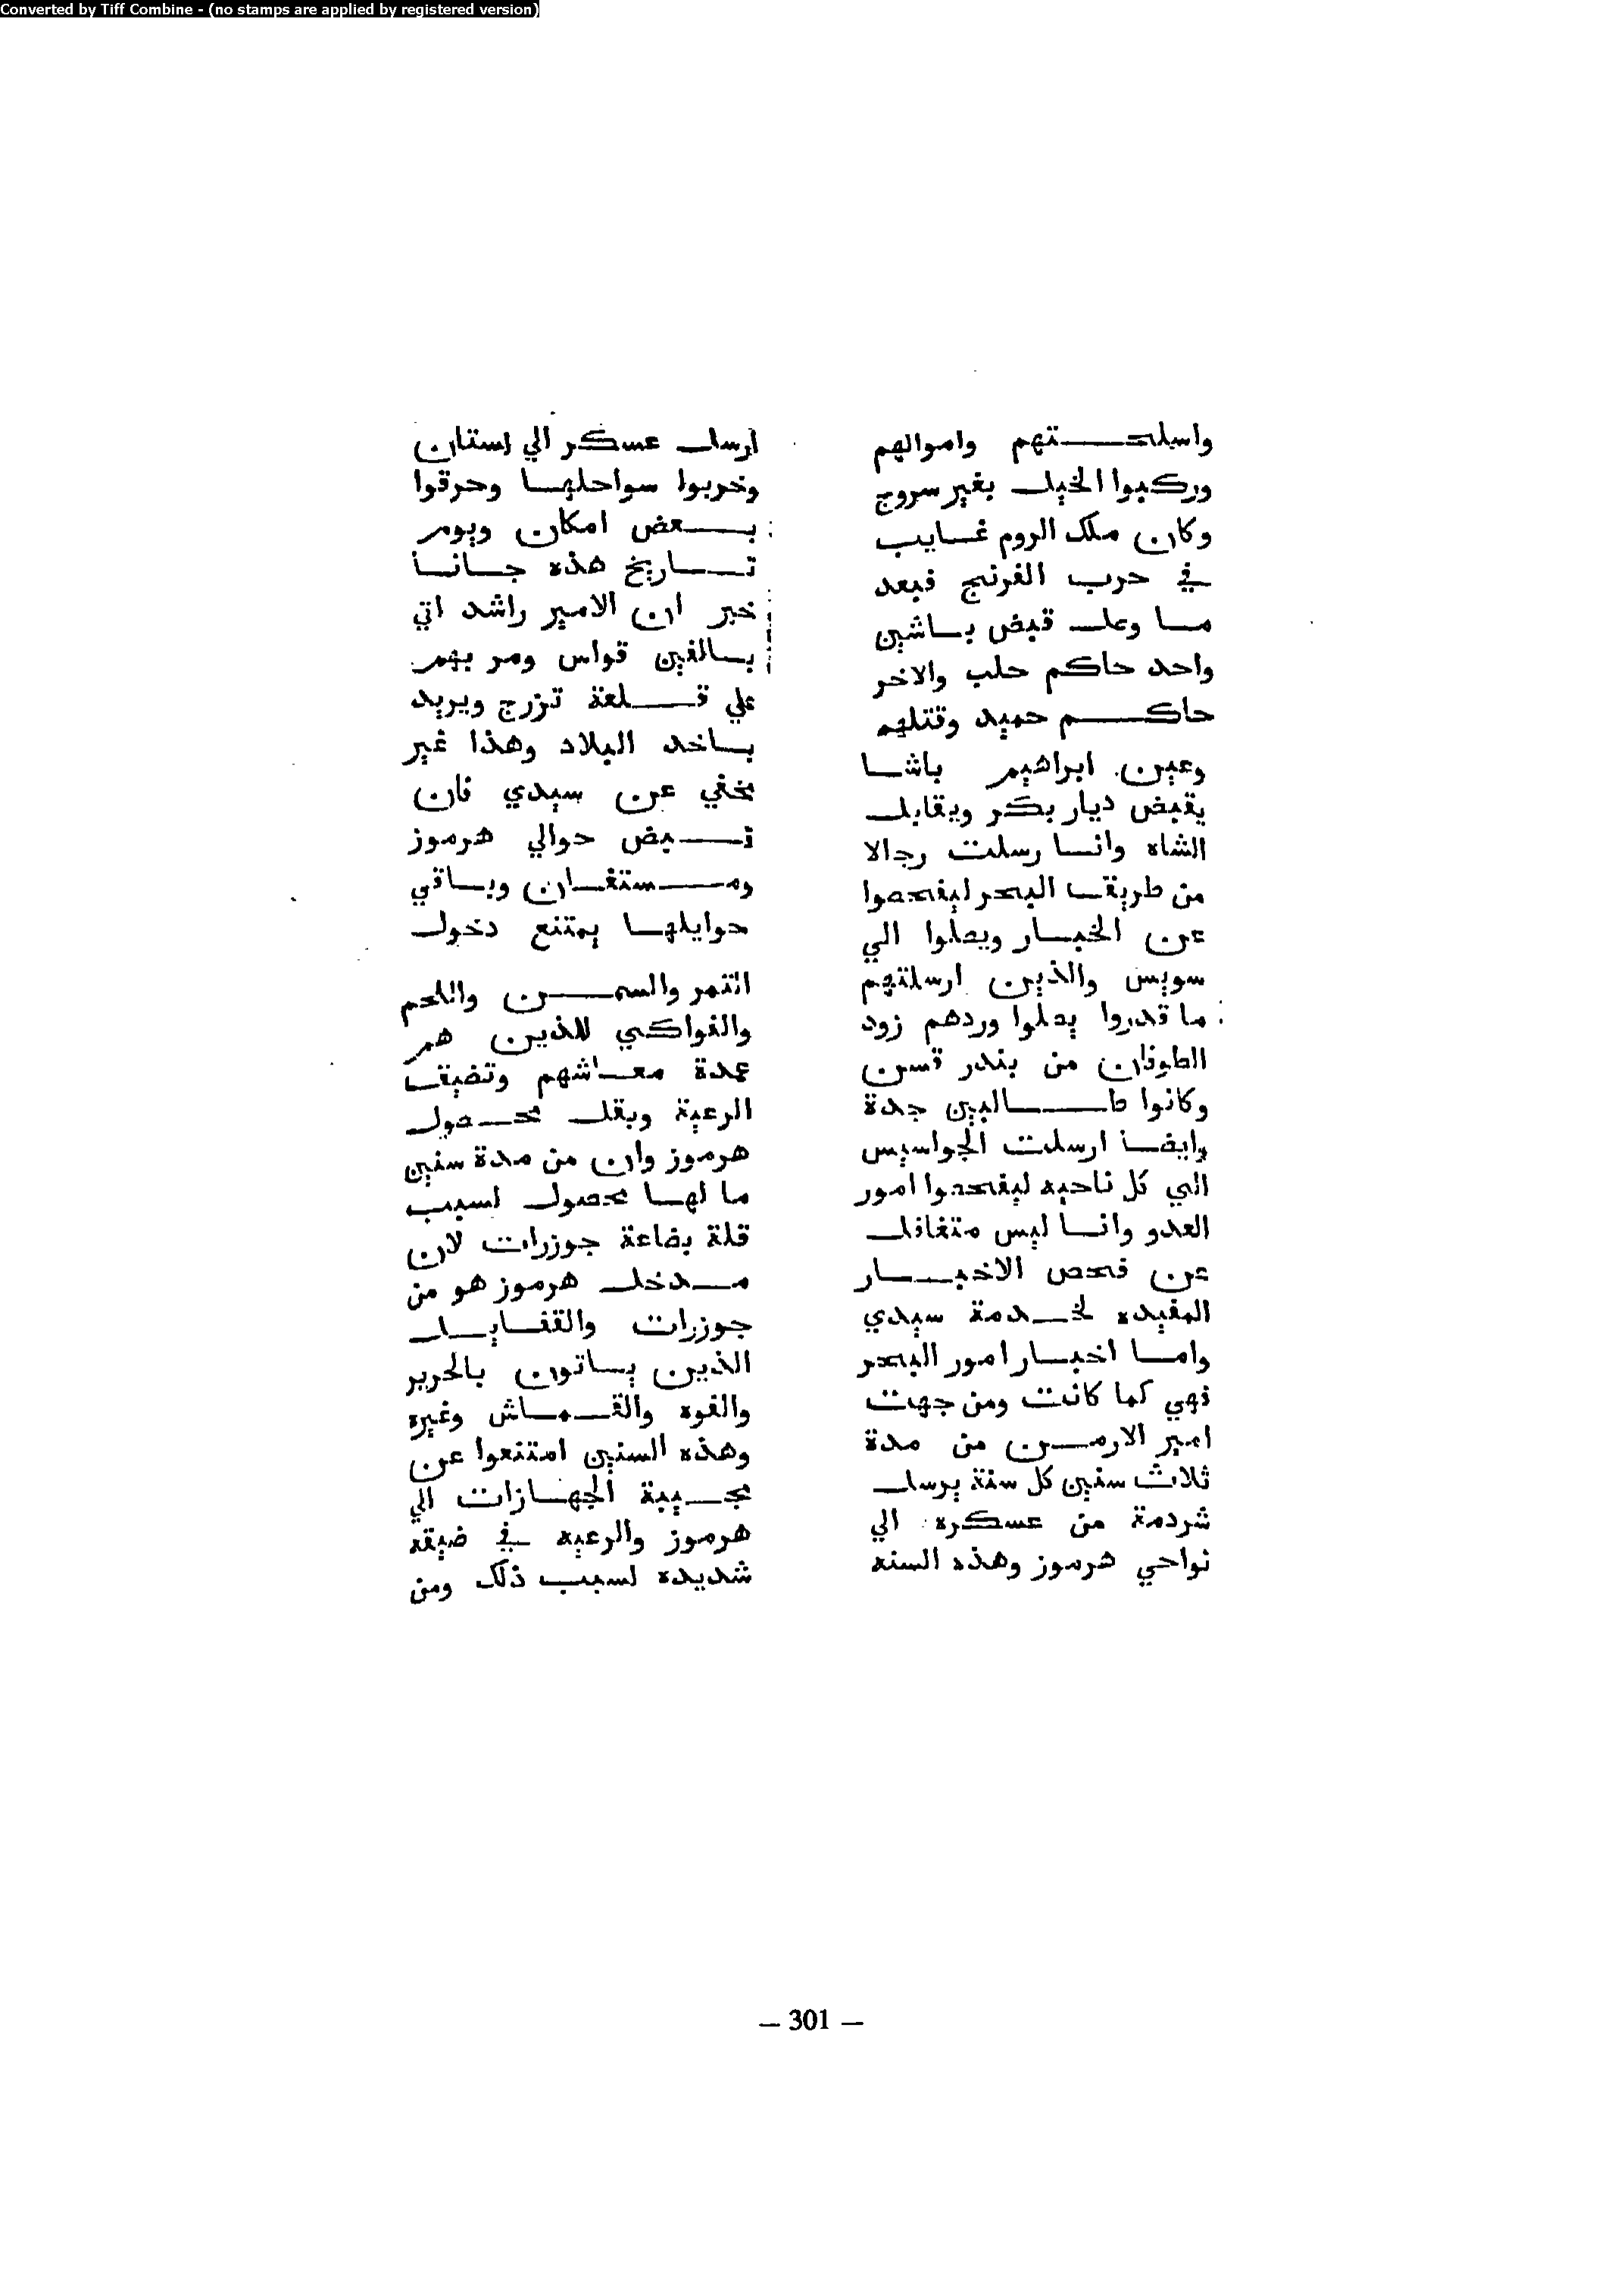 Converted by Tiff Combine - (no stamps are applied by registered version)
واسلحـــتهم واموالهم
وركبوا الخيل بغير سروج
وكان ملك الروم غـايب
في حرب الفرنج فبعد
مـا وصل قبض بـاشين
واحد حاكم حلب والاخر
حاكـــم حميد وقتلهم
وعين ابراهيم باشـا
يقبض ديار بكر ويقابل
الشاه وانـا رسلت رجالا
من طريق البحر ليفحصوا
عن الخبـار ويصلوا الي
سويس والذين ارسلتهم
ما قدروا يصلوا وردهم زود
الطوفان من بندر قسن
وكانوا طــالبين جدة
وايضـا ارسلت الجواسيس
الي كل ناحيه ليفحصوا امور
العدو وانـا ليس متغافل
عن فحص الاخبـــار
المفيده لخـدمة سيدي
وامـا اخبـار امور البحر
فهي كما كانت ومن جهت
امير الارمــن من مدة
ثلاث سنين كل سنة يرسل
شردمة من عسكره الي
نواحي هرموز وهذه السنه
ارسل عسكر الي لستان
وخربوا سواحلهـا وحرقوا
بــعض امكان ويوم
تــاريخ هذه جـانـا
خبر ان الامير راشد اتي
بـالفين قواس ومر بهم
علي قــلعة تزرج ويريد
يـاخد البلاد وهذا غير
يخفي عن سيدي فان
قــبض حوالي هرموز
ومــستغـان وبـاقي
حوايلهـا يمتنع دخول
التمر والسمــن واللحم
والفواكي للذين هم
عمدة معـاشهم وتضيق
الرعية ويقل محـصول
هرموز وان من مدة سنين
ما لهـا محصول لسبب
قلة بضاعة جوزرات لان
مـدخل هرموز هو من
جوزرات والقفـايـل
الذين يـاتون بالحرير
والفوه والقـمـاش وغيره
وهذه السنين امتنعوا عن
مجـيبة الجهـازات الي
هرموز والرعيه في ضيقه
شديده لسبب ذلك ومن
— 301 —